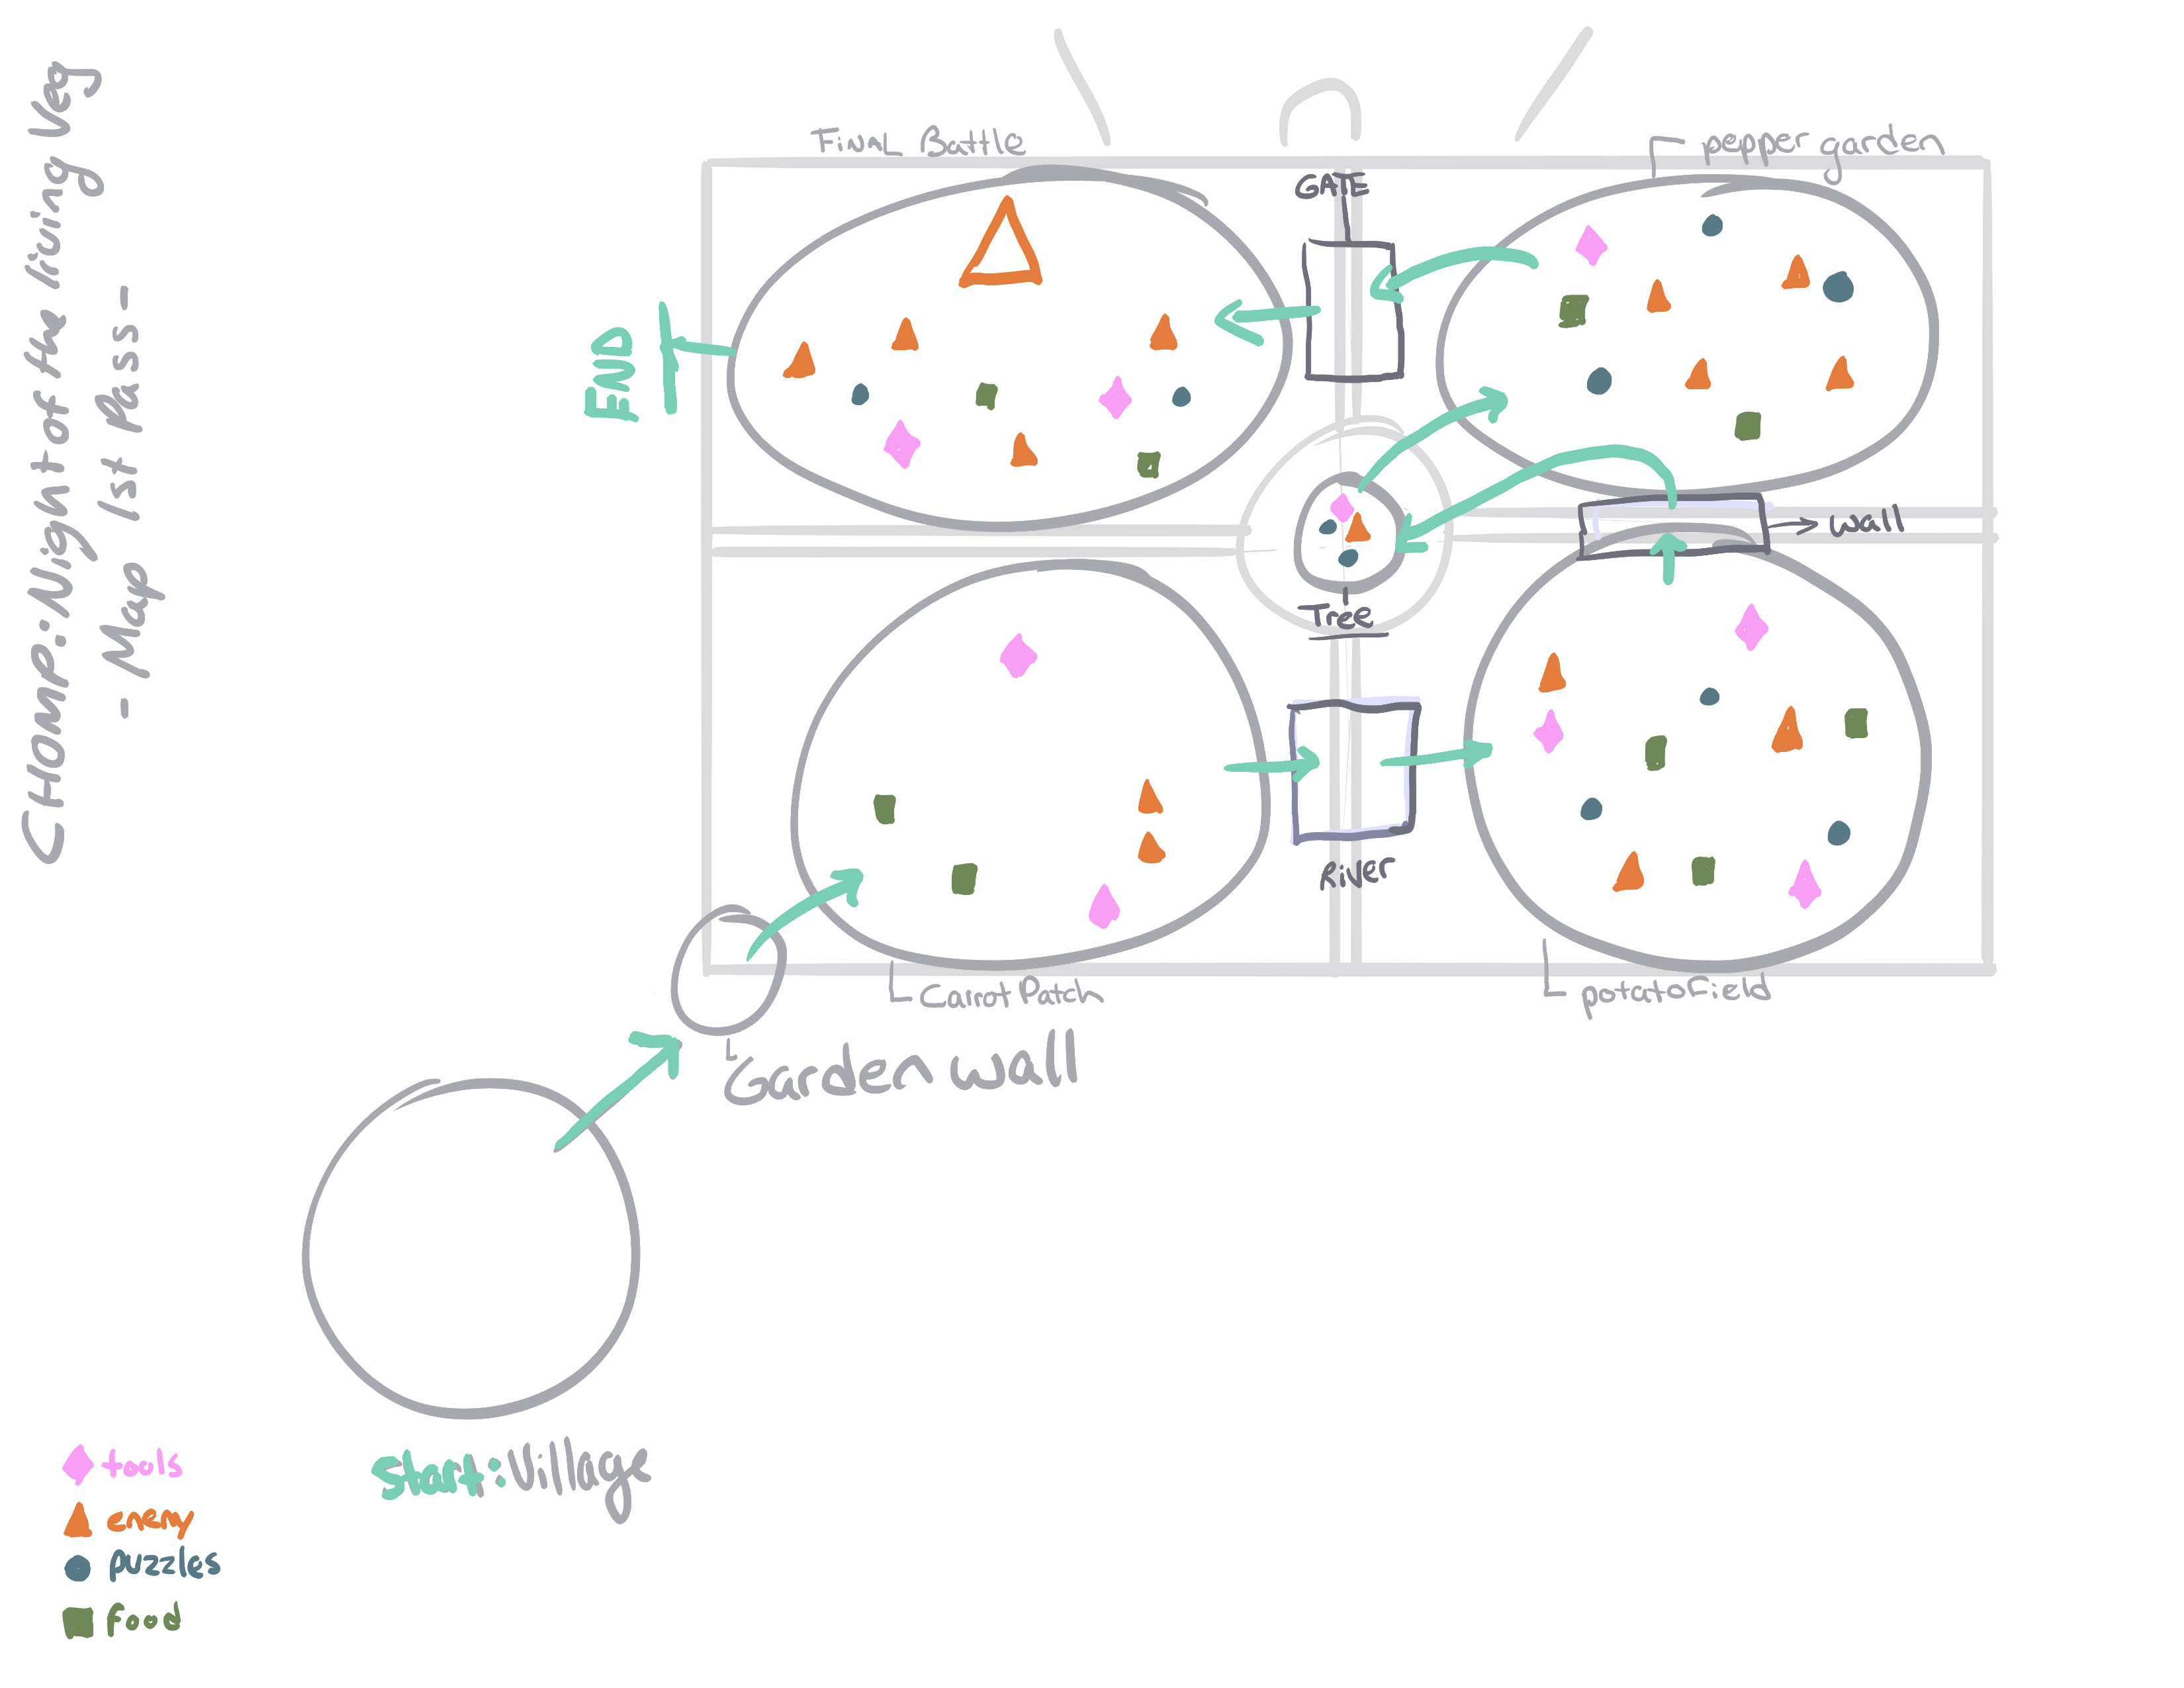 CHOMP: Night of the living Veg
- Map 1st Pass -
Final Battle
pepper garden
GATE
END
wall
Tree
River
Carrot Patch
potato Field
Garden wall
start: Village
tools
enemy
puzzles
food